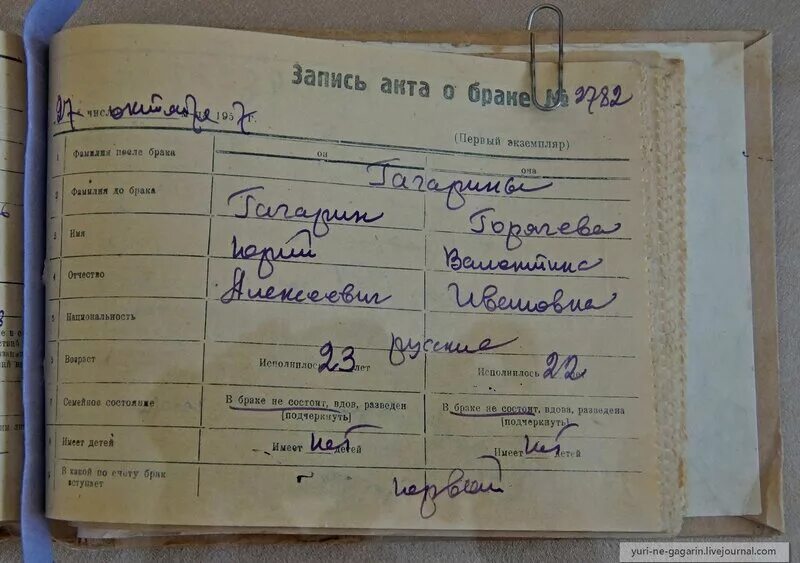 Запись акта о браке № 2782
27 числа октября 1957 г.
(Первый экземпляр)
он она
1 Фамилия после брака Гагарины
2 Фамилия до брака Гагарин Горячева
3 Имя Юрий Валентина
4 Отчество Алексеевич Ивановна
5 Национальность русские
6 Возраст Исполнилось 23 лет Исполнилось 22
7 Семейное состояние В браке не состоит, вдов, разведен В браке не состоит, вдова, разведена
(подчеркнуть) (подчеркнуть)
8 Имеет детей Имеет нет детей Имеет нет детей
9 В какой по счету брак
вступает первый
yuri-ne-gagarin.livejournal.com